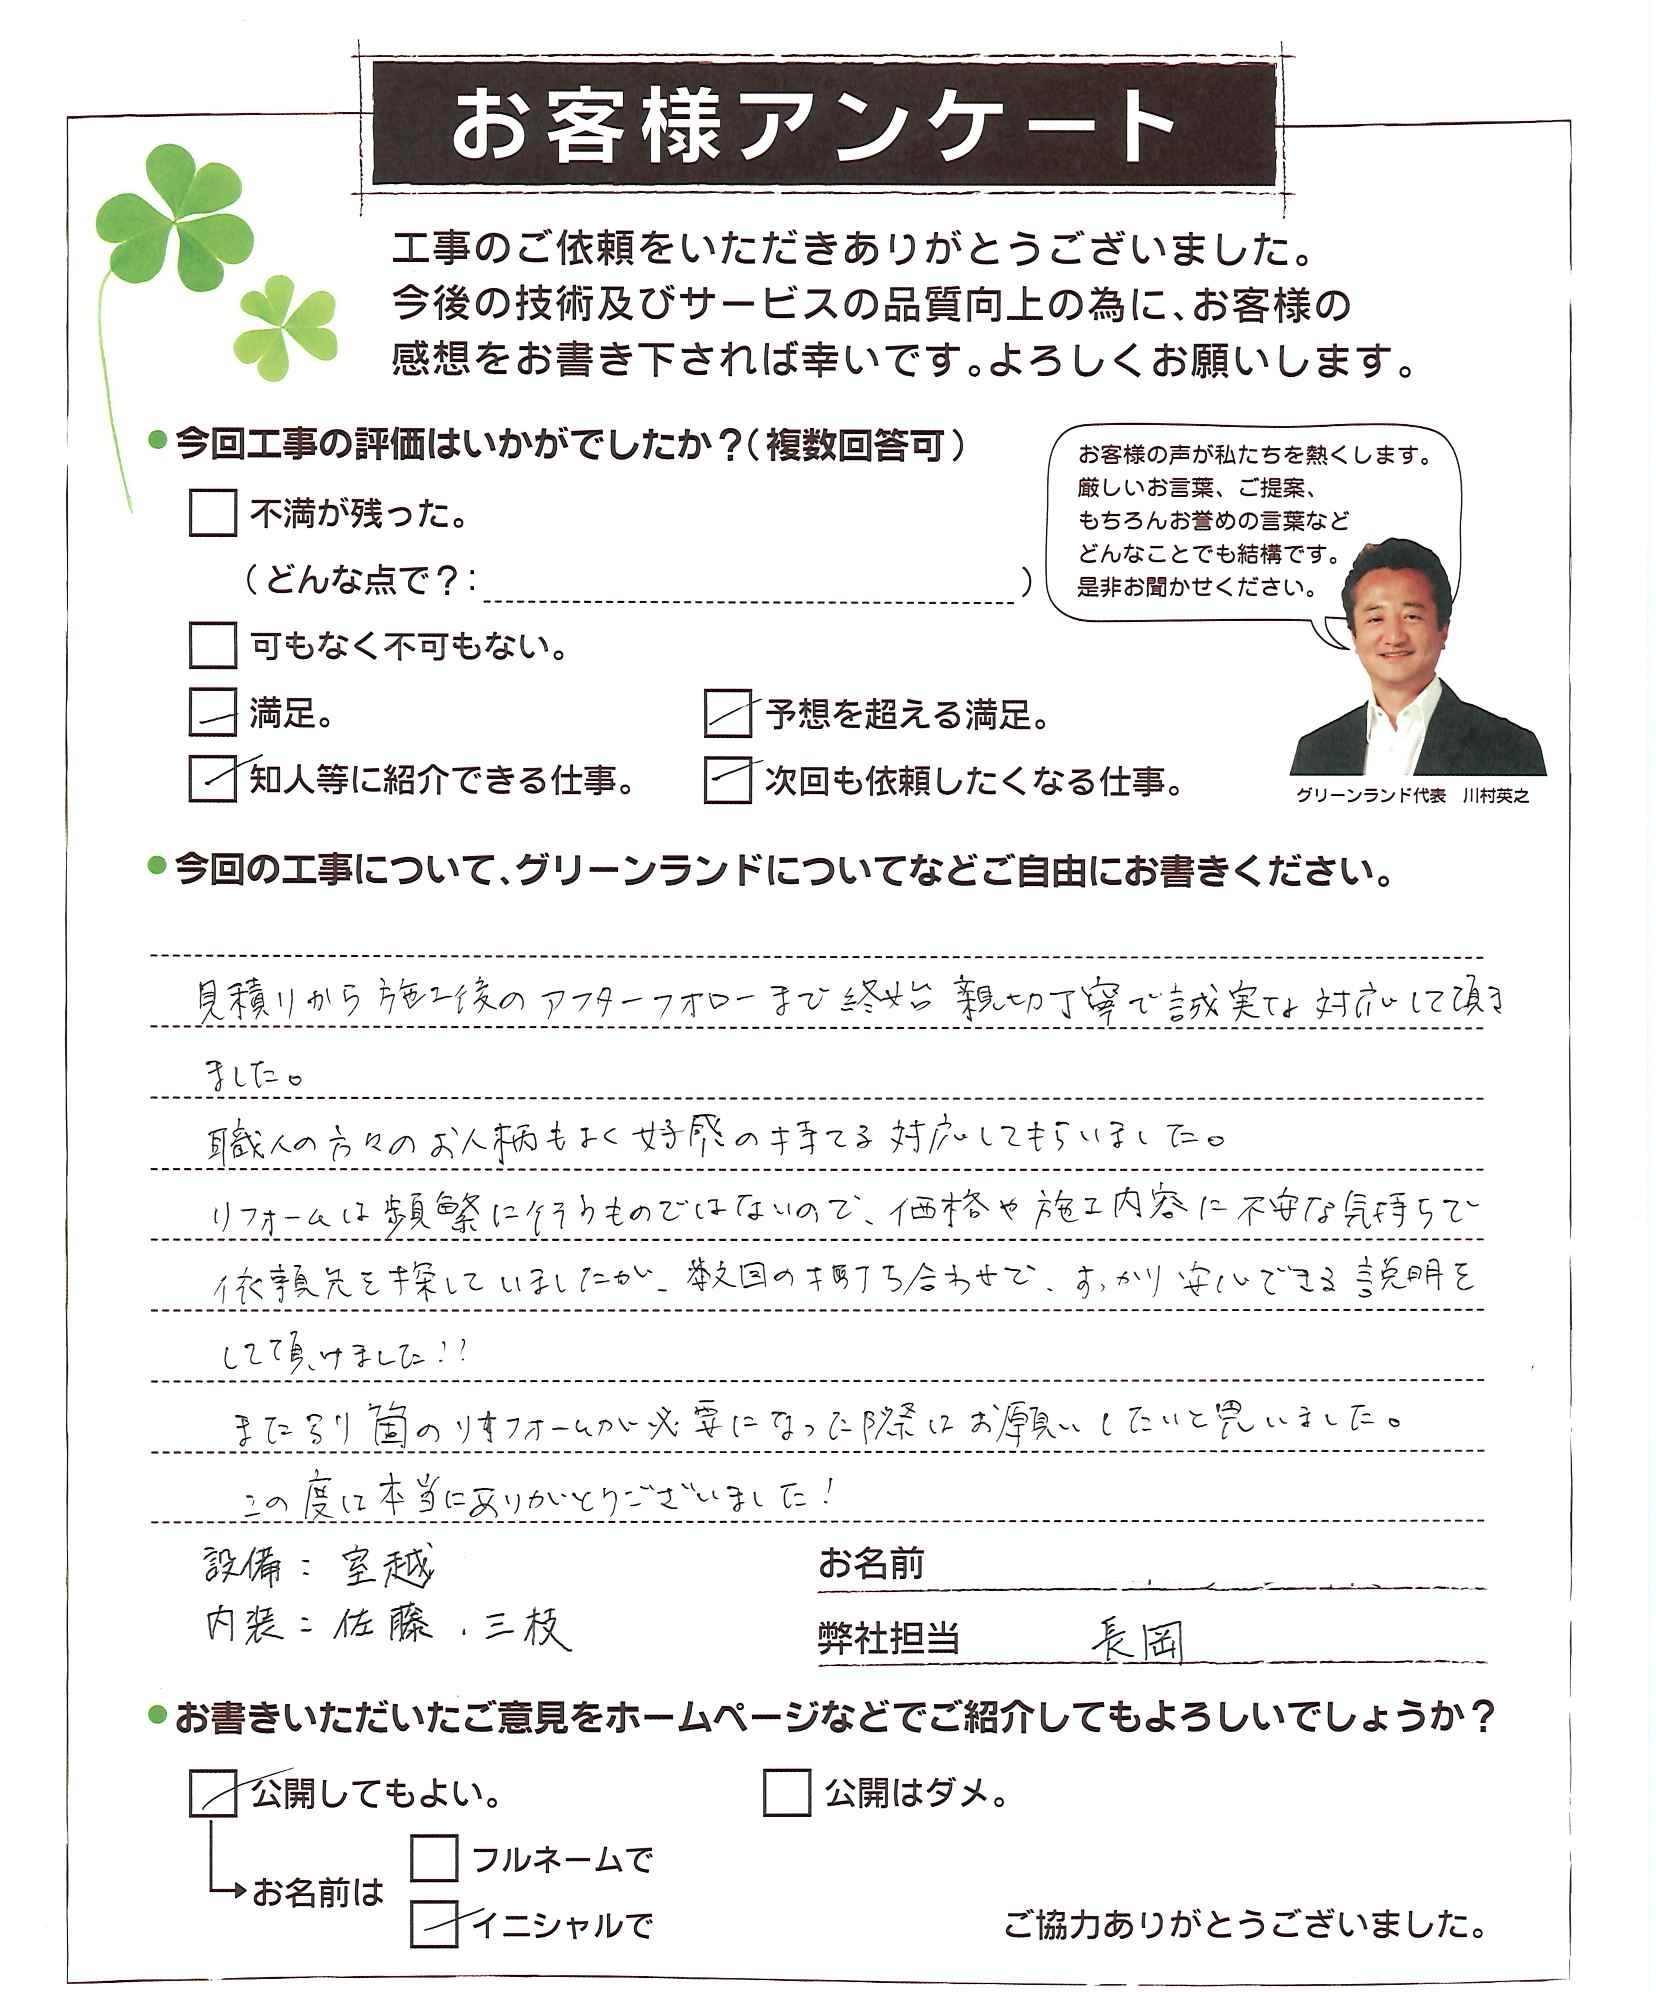 お客様アンケート
工事のご依頼をいただきありがとうございました。
今後の技術及びサービスの品質向上の為に、お客様の
感想をお書き下されば幸いです。よろしくお願いします。
今回工事の評価はいかがでしたか？(複数回答可)
不満が残った。
(どんな点で？: )
可もなく不可もない。
満足。 予想を超える満足。
知人等に紹介できる仕事。 次回も依頼したくなる仕事。
お客様の声が私たちを熱くします。
厳しいお言葉、ご提案、
もちろんお誉めの言葉など
どんなことでも結構です。
是非お聞かせください。
グリーンランド代表 川村英之
今回の工事について、グリーンランドについてなどご自由にお書きください。
見積りから施工後のアフターフォローまで終始親切丁寧で誠実な対応して頂き
ました。
職人の方々のお人柄もよく好感の持てる対応してもらいました。
リフォームは頻繁に行うものではないので、価格や施工内容に不安な気持ちで
依頼先を探していましたが、数回の打ち合わせで、すっかり安心できる説明を
して頂けました!!
また別箇のリフォームが必要になった際はお願いしたいと思いました。
この度は本当にありがとうございました!
設備: 室越
内装: 佐藤、三枝
お名前
弊社担当 長岡
お書きいただいたご意見をホームページなどでご紹介してもよろしいでしょうか？
公開してもよい。 公開はダメ。
お名前は
フルネームで
イニシャルで
ご協力ありがとうございました。